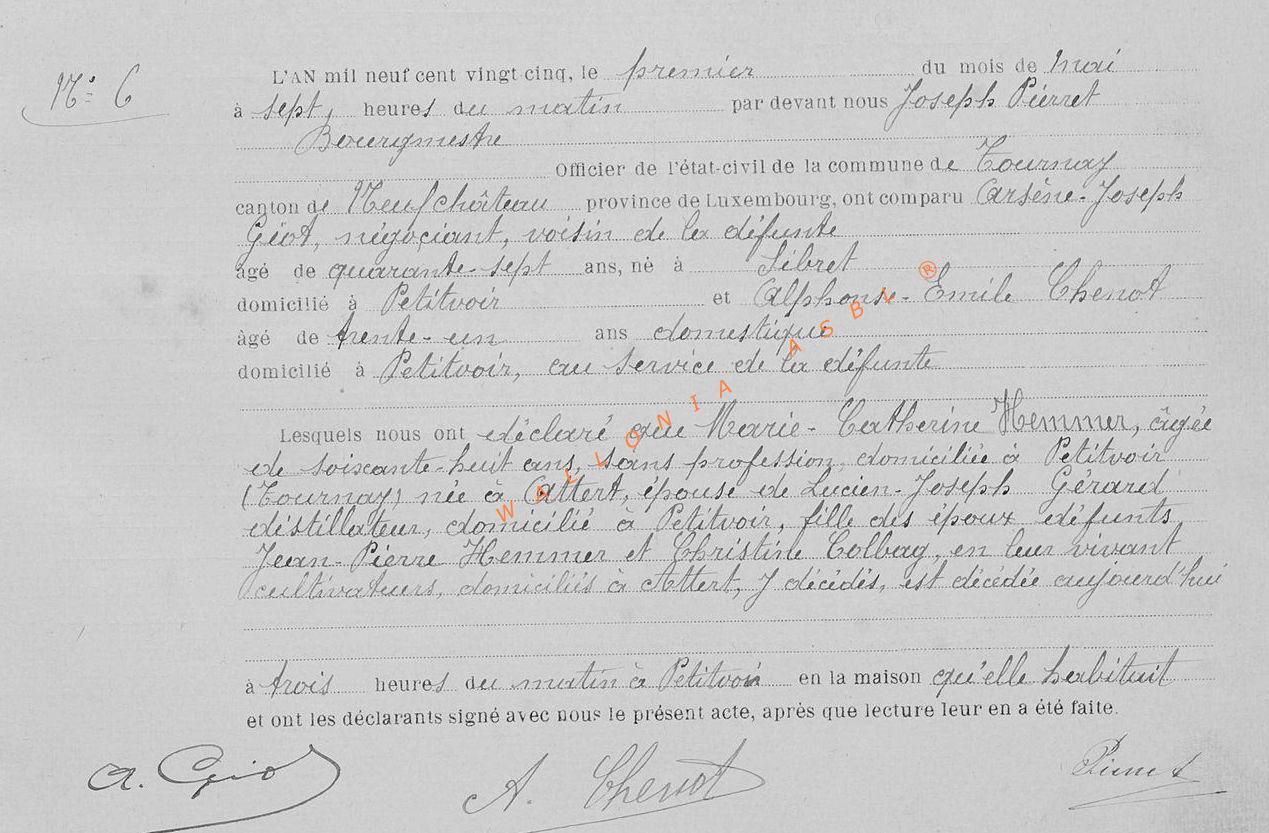 N° 6
L'AN mil neuf cent vingt cinq, le premier du mois de mai
à sept, heures du matin par devant nous Joseph Pierret
Bourgmestre
Officier de l'état-civil de la commune de Tournay
canton de Neufchâteau province de Luxembourg, ont comparu Arsène-Joseph
Géot, négociant, voisin de la défunte
âgé de quarante-sept ans, né à Sibret
domicilié à Petitvoir et Alphonse-Emile Chenot
âgé de trente-un ans domestique
domicilié à Petitvoir, au service de la défunte
Lesquels nous ont déclaré que Marie-Catherine Hemmer, âgée
de soixante-huit ans, sans profession, domiciliée à Petitvoir
(Tournay) née à Attert, épouse de Lucien-Joseph Gérard
distillateur, domicilié à Petitvoir, fille des époux défunts
Jean-Pierre Hemmer et Christine Colbag, en leur vivant
cultivateurs, domiciliés à Attert, y décédés, est décédée aujourd'hui
à trois heures du matin à Petitvoir en la maison qu'elle habitait
et ont les déclarants signé avec nous le présent acte, après que lecture leur en a été faite.
A. Chenot
Pierret
WALLONIA ASBL ®